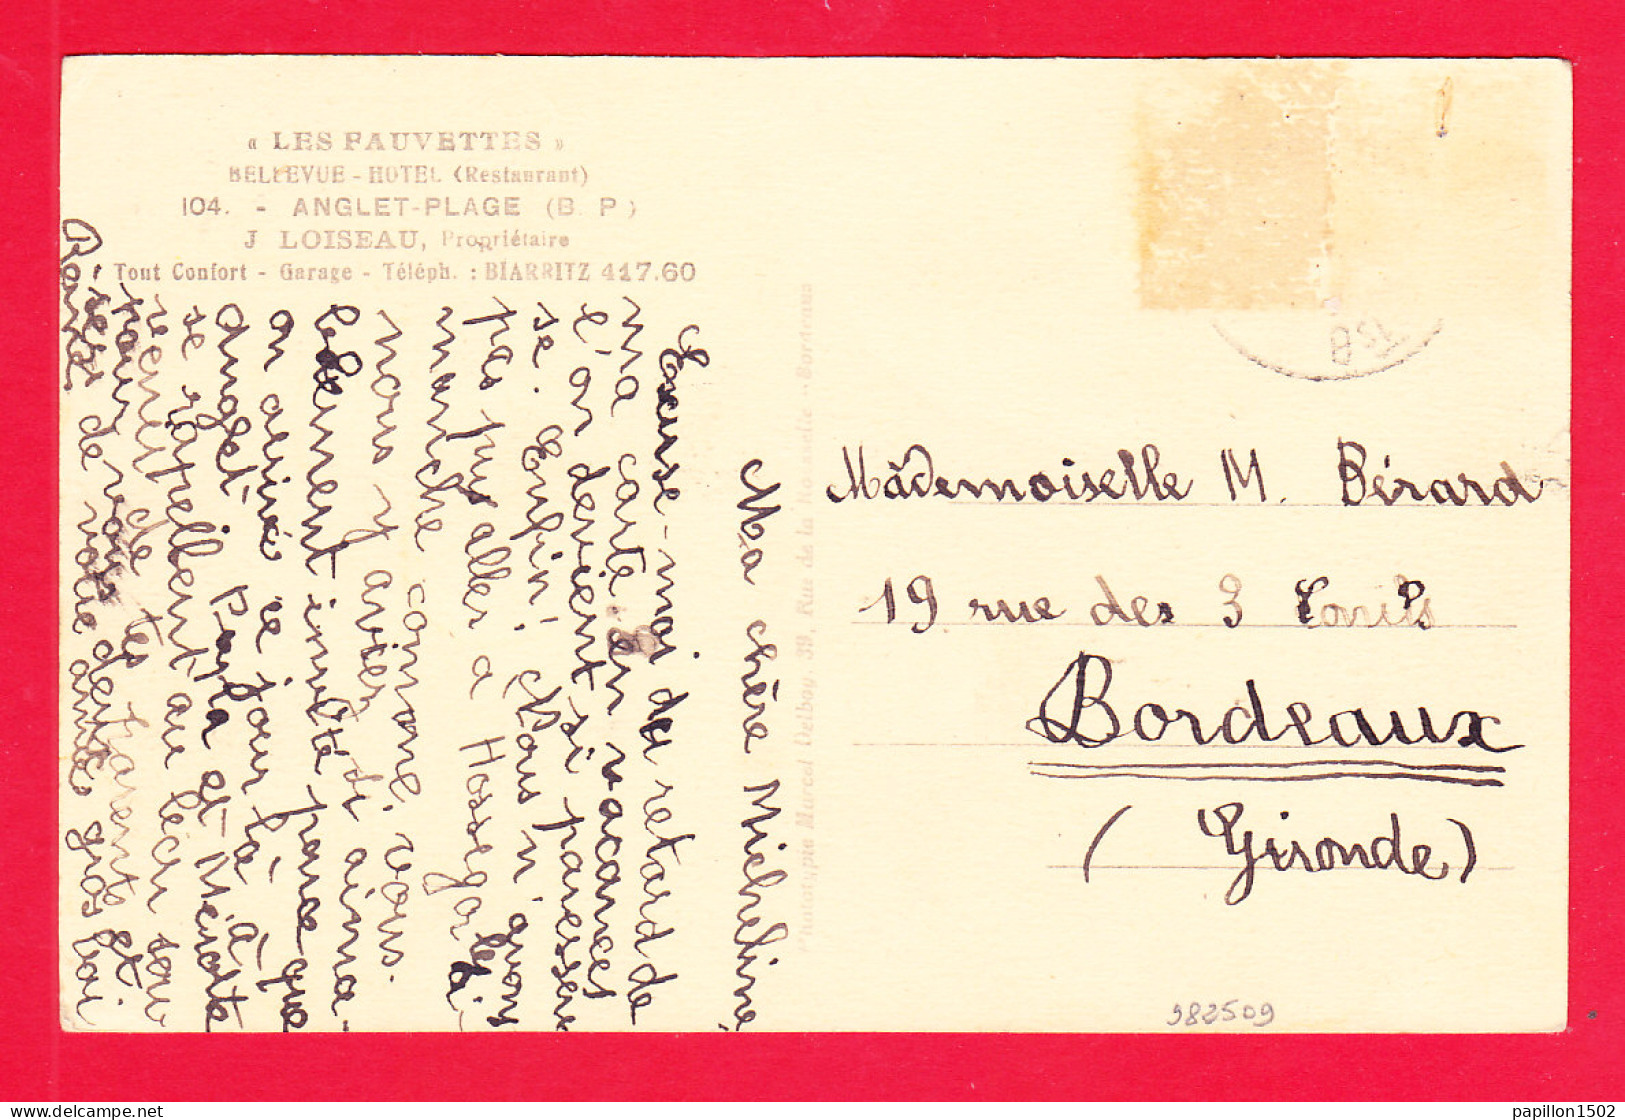 « LES FAUVETTES »
BELLEVUE - HOTEL (Restaurant)
104. - ANGLET-PLAGE (B. P.)
J. LOISEAU, Propriétaire
Tout Confort - Garage - Téléph. : BIARRITZ 417.60
Ma chère Micheline,
Excuse-moi du retard de
ma carte en vacances
l'on devient si paresseu
se. Enfin! Nous n'avons
pas pu aller a Hossegor le di-
manche comme vous
nous y aviez si aima-
blement invité parce que
on avait ce jour là à
Anglet Papa et
se rappellent au
de tes parents et
pour vous deux
de votre amie gros bai
Phototypie Marcel Delboy, 39, Rue de la Rousselle - Bordeaux
Mademoiselle M. Bérard
19 rue des 3 Conils
Bordeaux
(Gironde)
982509
papillon1502